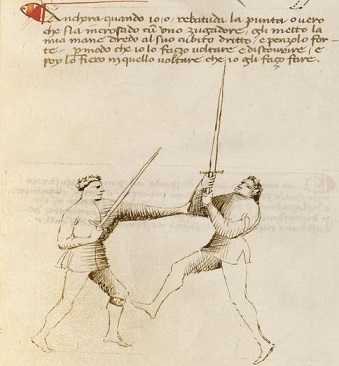 Anchora quando io o rebatuda la punta overo
che sia incrosado cū uno zugadore, gli metto la
mia mane dredo al suo cubito dritto, e penzolo for-
te, p modo che io lo fazo voltare e discovrire, e
poy lo fiero in quello voltare che io gli fazo fare.